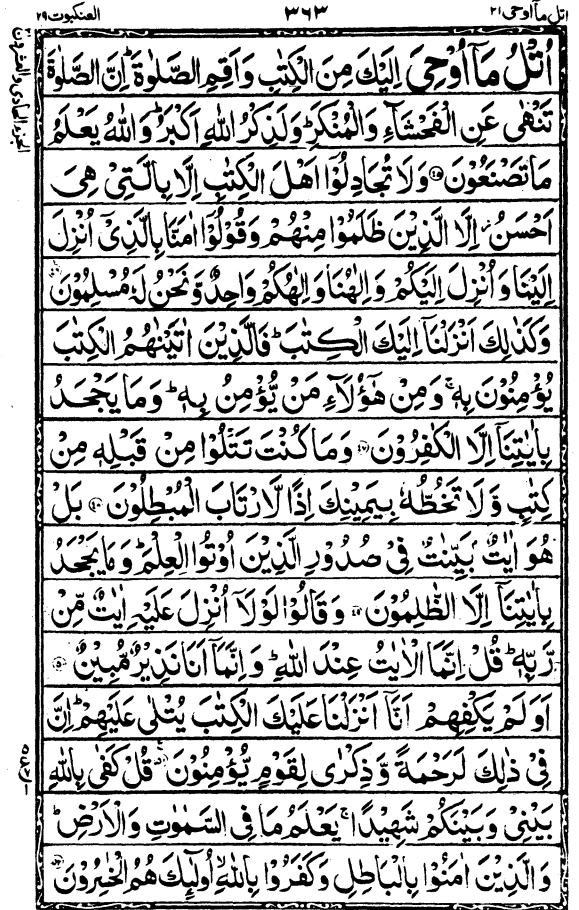 اتل مآ اوحی ٢١
٣٦٣
العنکبوت ٢٩
اُتْلُ مَاۤ اُوْحِیَ اِلَیْكَ مِنَ الْكِتٰبِ وَ اَقِمِ الصَّلٰوةَ ؕ اِنَّ الصَّلٰوةَ
تَنْهٰی عَنِ الْفَحْشَآءِ وَ الْمُنْكَرِ ؕ وَ لَذِكْرُ اللّٰهِ اَكْبَرُ ؕ وَ اللّٰهُ یَعْلَمُ
مَا تَصْنَعُوْنَ ۝٤٥ وَ لَا تُجَادِلُوْۤا اَهْلَ الْكِتٰبِ اِلَّا بِالَّتِیْ هِیَ
اَحْسَنُ ۖ اِلَّا الَّذِیْنَ ظَلَمُوْا مِنْهُمْ وَ قُوْلُوْۤا اٰمَنَّا بِالَّذِیْۤ اُنْزِلَ
اِلَیْنَا وَ اُنْزِلَ اِلَیْكُمْ وَ اِلٰهُنَا وَ اِلٰهُكُمْ وَاحِدٌ وَّ نَحْنُ لَهٗ مُسْلِمُوْنَ ۝٤٦
وَ كَذٰلِكَ اَنْزَلْنَاۤ اِلَیْكَ الْكِتٰبَ ؕ فَالَّذِیْنَ اٰتَیْنٰهُمُ الْكِتٰبَ
یُؤْمِنُوْنَ بِهٖ ۚ وَ مِنْ هٰۤؤُلَآءِ مَنْ یُّؤْمِنُ بِهٖ ؕ وَ مَا یَجْحَدُ
بِاٰیٰتِنَاۤ اِلَّا الْكٰفِرُوْنَ ۝٤٧ وَ مَا كُنْتَ تَتْلُوْا مِنْ قَبْلِهٖ مِنْ
كِتٰبٍ وَّ لَا تَخُطُّهٗ بِیَمِیْنِكَ اِذًا لَّارْتَابَ الْمُبْطِلُوْنَ ۝٤٨ بَلْ
هُوَ اٰیٰتٌۢ بَیِّنٰتٌ فِیْ صُدُوْرِ الَّذِیْنَ اُوْتُوا الْعِلْمَ ؕ وَ مَا یَجْحَدُ
بِاٰیٰتِنَاۤ اِلَّا الظّٰلِمُوْنَ ۝٤٩ وَ قَالُوْا لَوْ لَاۤ اُنْزِلَ عَلَیْهِ اٰیٰتٌ مِّنْ
رَّبِّهٖ ؕ قُلْ اِنَّمَا الْاٰیٰتُ عِنْدَ اللّٰهِ ؕ وَ اِنَّمَاۤ اَنَا نَذِیْرٌ مُّبِیْنٌ ۝٥٠
اَوَ لَمْ یَكْفِهِمْ اَنَّاۤ اَنْزَلْنَا عَلَیْكَ الْكِتٰبَ یُتْلٰی عَلَیْهِمْ ؕ اِنَّ
فِیْ ذٰلِكَ لَرَحْمَةً وَّ ذِكْرٰی لِقَوْمٍ یُّؤْمِنُوْنَ ۝٥١ قُلْ كَفٰی بِاللّٰهِ
بَیْنِیْ وَ بَیْنَكُمْ شَهِیْدًا ۚ یَعْلَمُ مَا فِی السَّمٰوٰتِ وَ الْاَرْضِ ؕ
وَ الَّذِیْنَ اٰمَنُوْا بِالْبَاطِلِ وَ كَفَرُوْا بِاللّٰهِ ۙ اُولٰٓىِٕكَ هُمُ الْخٰسِرُوْنَ ۝٥٢
الجزء الحادی والعشرون